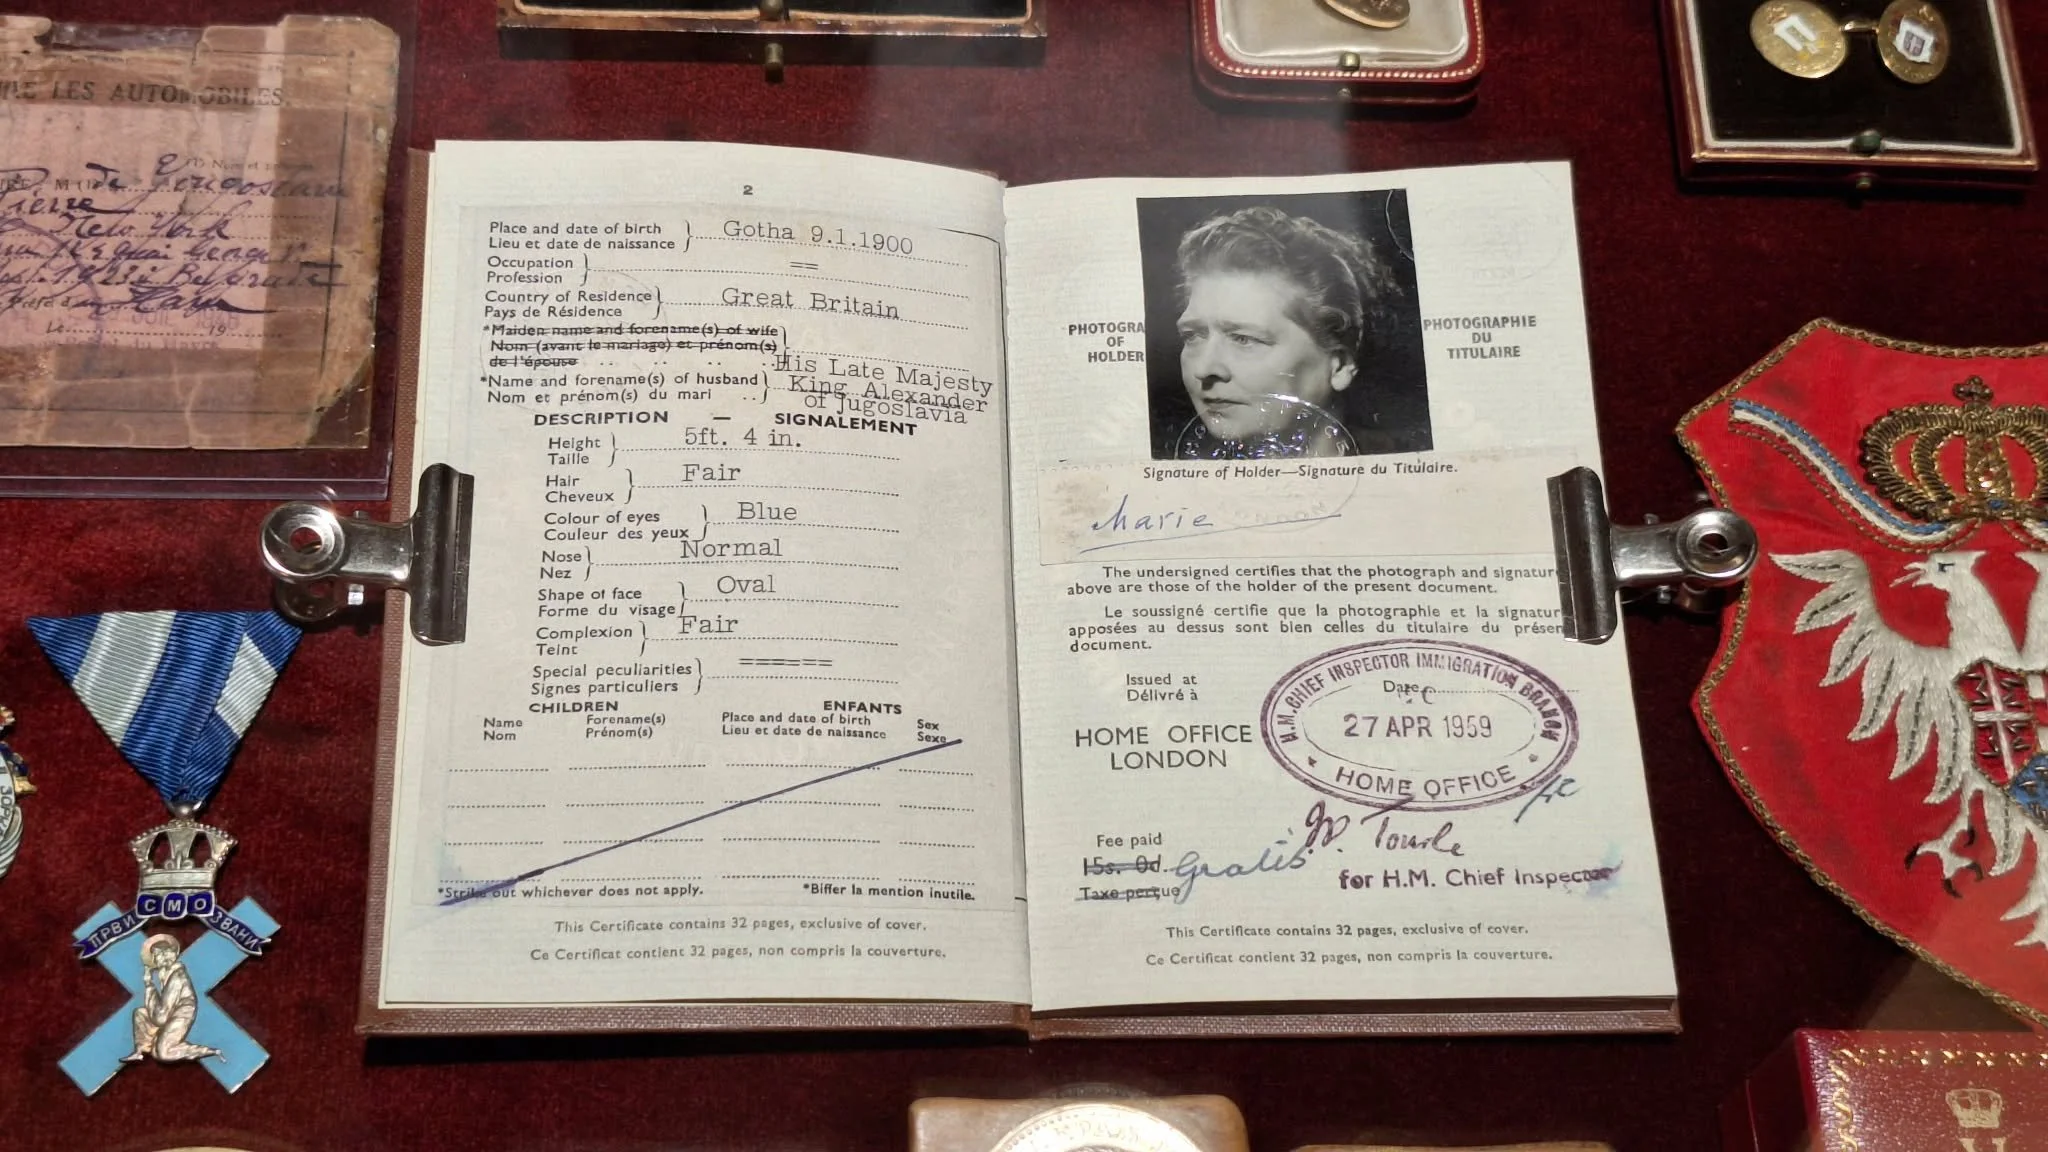 LES AUTOMOBILES
de Yougoslavie
Pierre
New York
Belgrade
2
Place and date of birth
Lieu et date de naissance
Gotha 9.1.1900
Occupation
Profession
==
Country of Residence
Pays de Résidence
Great Britain
*Maiden name and forename(s) of wife
Nom (avant le mariage) et prénom(s)
de l'épouse
*Name and forename(s) of husband
Nom et prénom(s) du mari
His Late Majesty
King Alexander
of Jugoslavia
DESCRIPTION — SIGNALEMENT
Height
Taille
5ft. 4 in.
Hair
Cheveux
Fair
Colour of eyes
Couleur des yeux
Blue
Nose
Nez
Normal
Shape of face
Forme du visage
Oval
Complexion
Teint
Fair
Special peculiarities
Signes particuliers
======
CHILDREN ENFANTS
Name Forename(s) Place and date of birth Sex
Nom Prénom(s) Lieu et date de naissance Sexe
*Strike out whichever does not apply. *Biffer la mention inutile.
This Certificate contains 32 pages, exclusive of cover.
Ce Certificat contient 32 pages, non compris la couverture.
PHOTOGRA
OF
HOLDER
PHOTOGRAPHIE
DU
TITULAIRE
Signature of Holder—Signature du Titulaire.
Marie
The undersigned certifies that the photograph and signature
above are those of the holder of the present document.
Le soussigné certifie que la photographie et la signatur
apposées au dessus sont bien celles du titulaire du présen
document.
Issued at
Délivré à
HOME OFFICE
LONDON
Date
H.M. CHIEF INSPECTOR IMMIGRATION BRANCH
27 APR 1959
HOME OFFICE
Fee paid
15s. 0d.
Taxe perçue
Gratis
for H.M. Chief Inspector
This Certificate contains 32 pages, exclusive of cover.
Ce Certificat contient 32 pages, non compris la couverture.
ПРВИ СМО ЗВАНИ